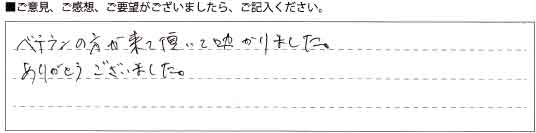 ■ご意見、ご感想、ご要望がございましたら、ご記入ください。
ベテランの方が来て頂いて助かりました。
ありがとうございました。